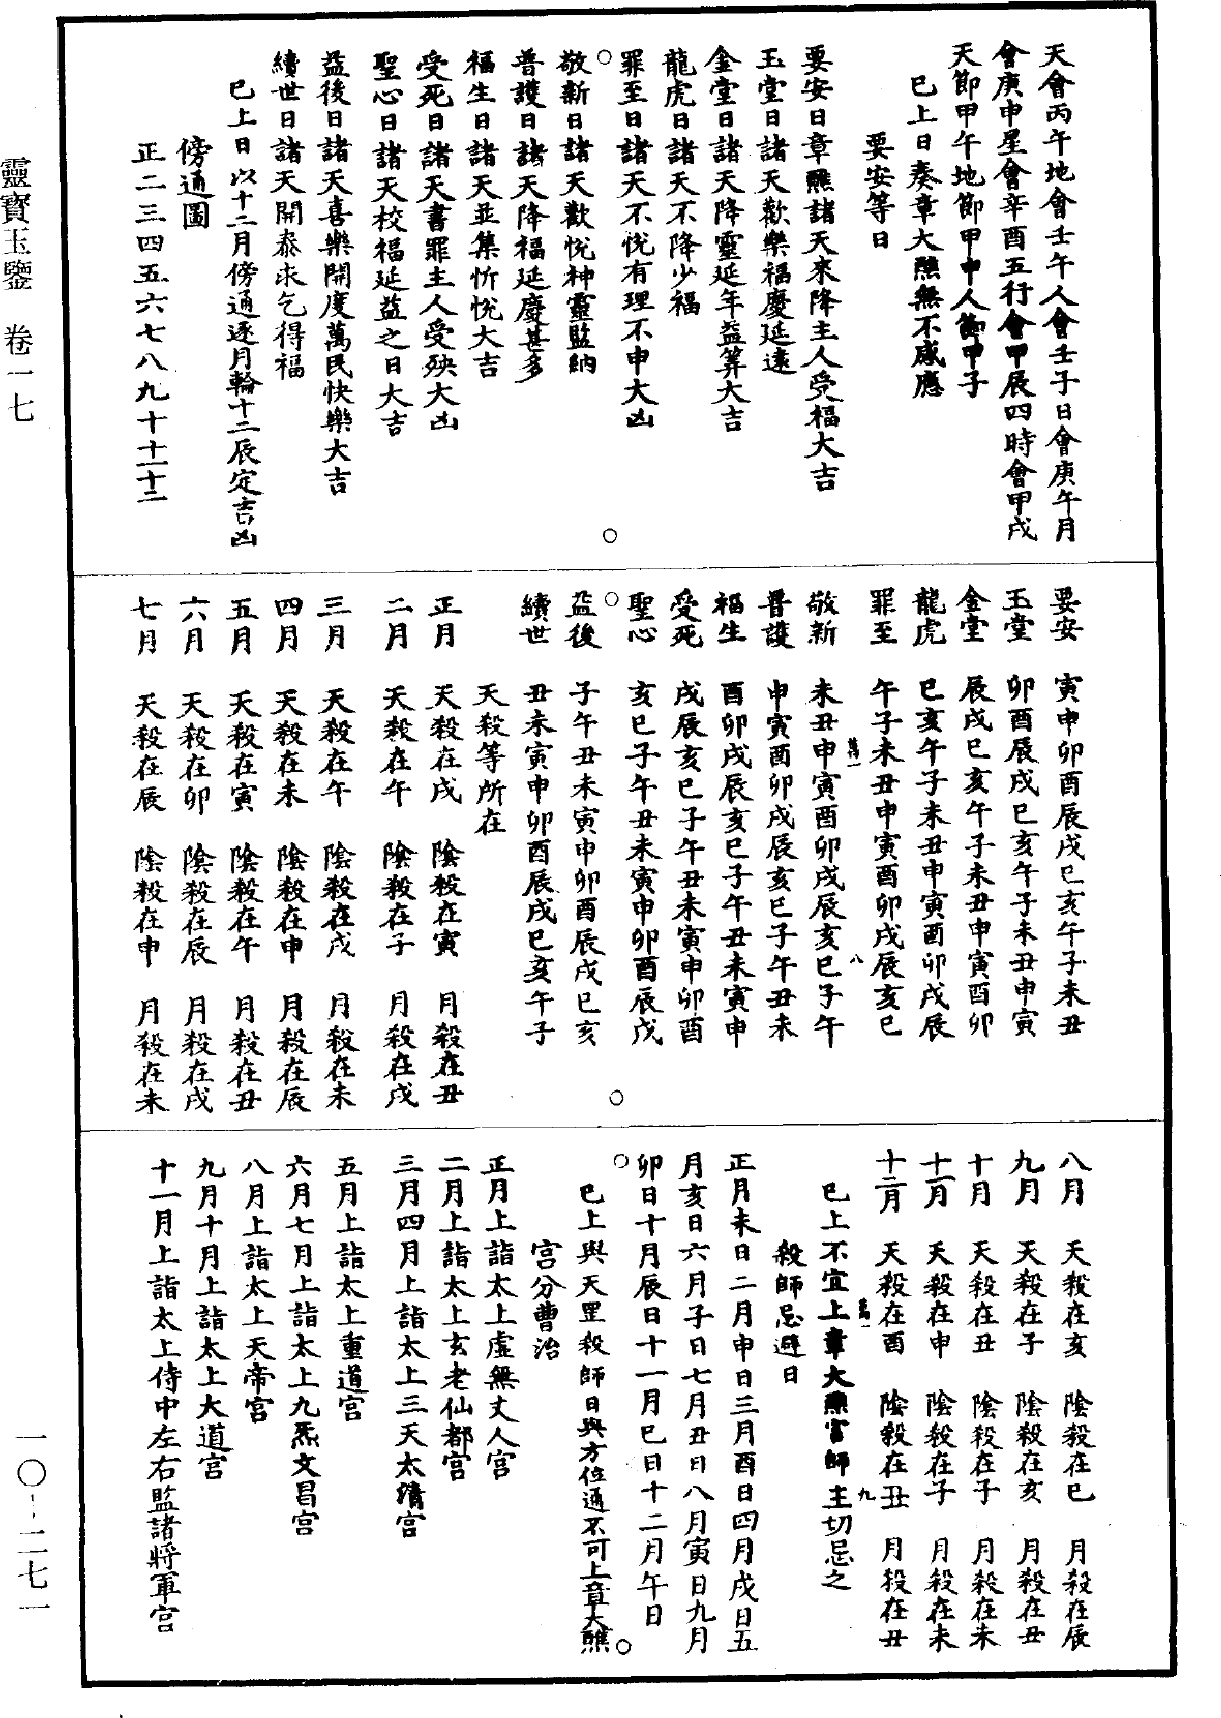 天會丙午地會壬午人會壬子日會庚午月
會庚申星會辛酉五行會甲辰四時會甲戌
天節甲午地節甲申人節甲子
已上日奏章大醮無不感應
要安等日
要安日章醮諸天來降主人受福大吉
玉堂日諸天歡樂福慶延遠
金堂日諸天降靈延年益筭大吉
龍虎日諸天不降少福
罪至日諸天不悅有理不申大凶
敬新日諸天歡悅神靈監納
普護日諸天降福延慶甚多
福生日諸天並集忻悅大吉
受死日諸天書罪主人受殃大凶
聖心日諸天校福延益之日大吉
益後日諸天喜樂開度萬民快樂大吉
續世日諸天開泰求乞得福
已上日以十二月傍通逐月輪十二辰定吉凶
傍通圖
正二三四五六七八九十十一十二
要安 寅申卯酉辰戌巳亥午子未丑
玉堂 卯酉辰戌巳亥午子未丑申寅
金堂 辰戌巳亥午子未丑申寅酉卯
龍虎 巳亥午子未丑申寅酉卯戌辰
罪至 午子未丑申寅酉卯戌辰亥巳
敬新 未丑申寅酉卯戌辰亥巳子午
普護 申寅酉卯戌辰亥巳子午丑未
福生 酉卯戌辰亥巳子午丑未寅申
受死 戌辰亥巳子午丑未寅申卯酉
聖心 亥巳子午丑未寅申卯酉辰戌
益後 子午丑未寅申卯酉辰戌巳亥
續世 丑未寅申卯酉辰戌巳亥午子
天殺等所在
正月 天殺在戌 陰殺在寅 月殺在丑
二月 天殺在午 陰殺在子 月殺在戌
三月 天殺在午 陰殺在戌 月殺在未
四月 天殺在未 陰殺在申 月殺在辰
五月 天殺在寅 陰殺在午 月殺在丑
六月 天殺在卯 陰殺在辰 月殺在戌
七月 天殺在辰 陰殺在申 月殺在未
八月 天殺在亥 陰殺在巳 月殺在辰
九月 天殺在子 陰殺在亥 月殺在丑
十月 天殺在丑 陰殺在子 月殺在未
十一月 天殺在申 陰殺在子 月殺在未
十二月 天殺在酉 陰殺在丑 月殺在丑
已上不宜上章大醮官師主切忌之
殺師忌避日
正月未日二月申日三月酉日四月戌日五
月亥日六月子日七月丑日八月寅日九月
卯日十月辰日十一月巳日十二月午日
已上與天罡殺師日與方位通不可上章大醮
宮分曹治
正月上詣太上虛無丈人宮
二月上詣太上玄老仙都宮
三月四月上詣太上三天太清宮
五月上詣太上重道宮
六月七月上詣太上九炁文昌宮
八月上詣太上天帝宮
九月十月上詣太上大道宮
十一月上詣太上侍中左右監諸將軍宮
靈寶玉鑒 卷一七
一〇-二七一
八
九